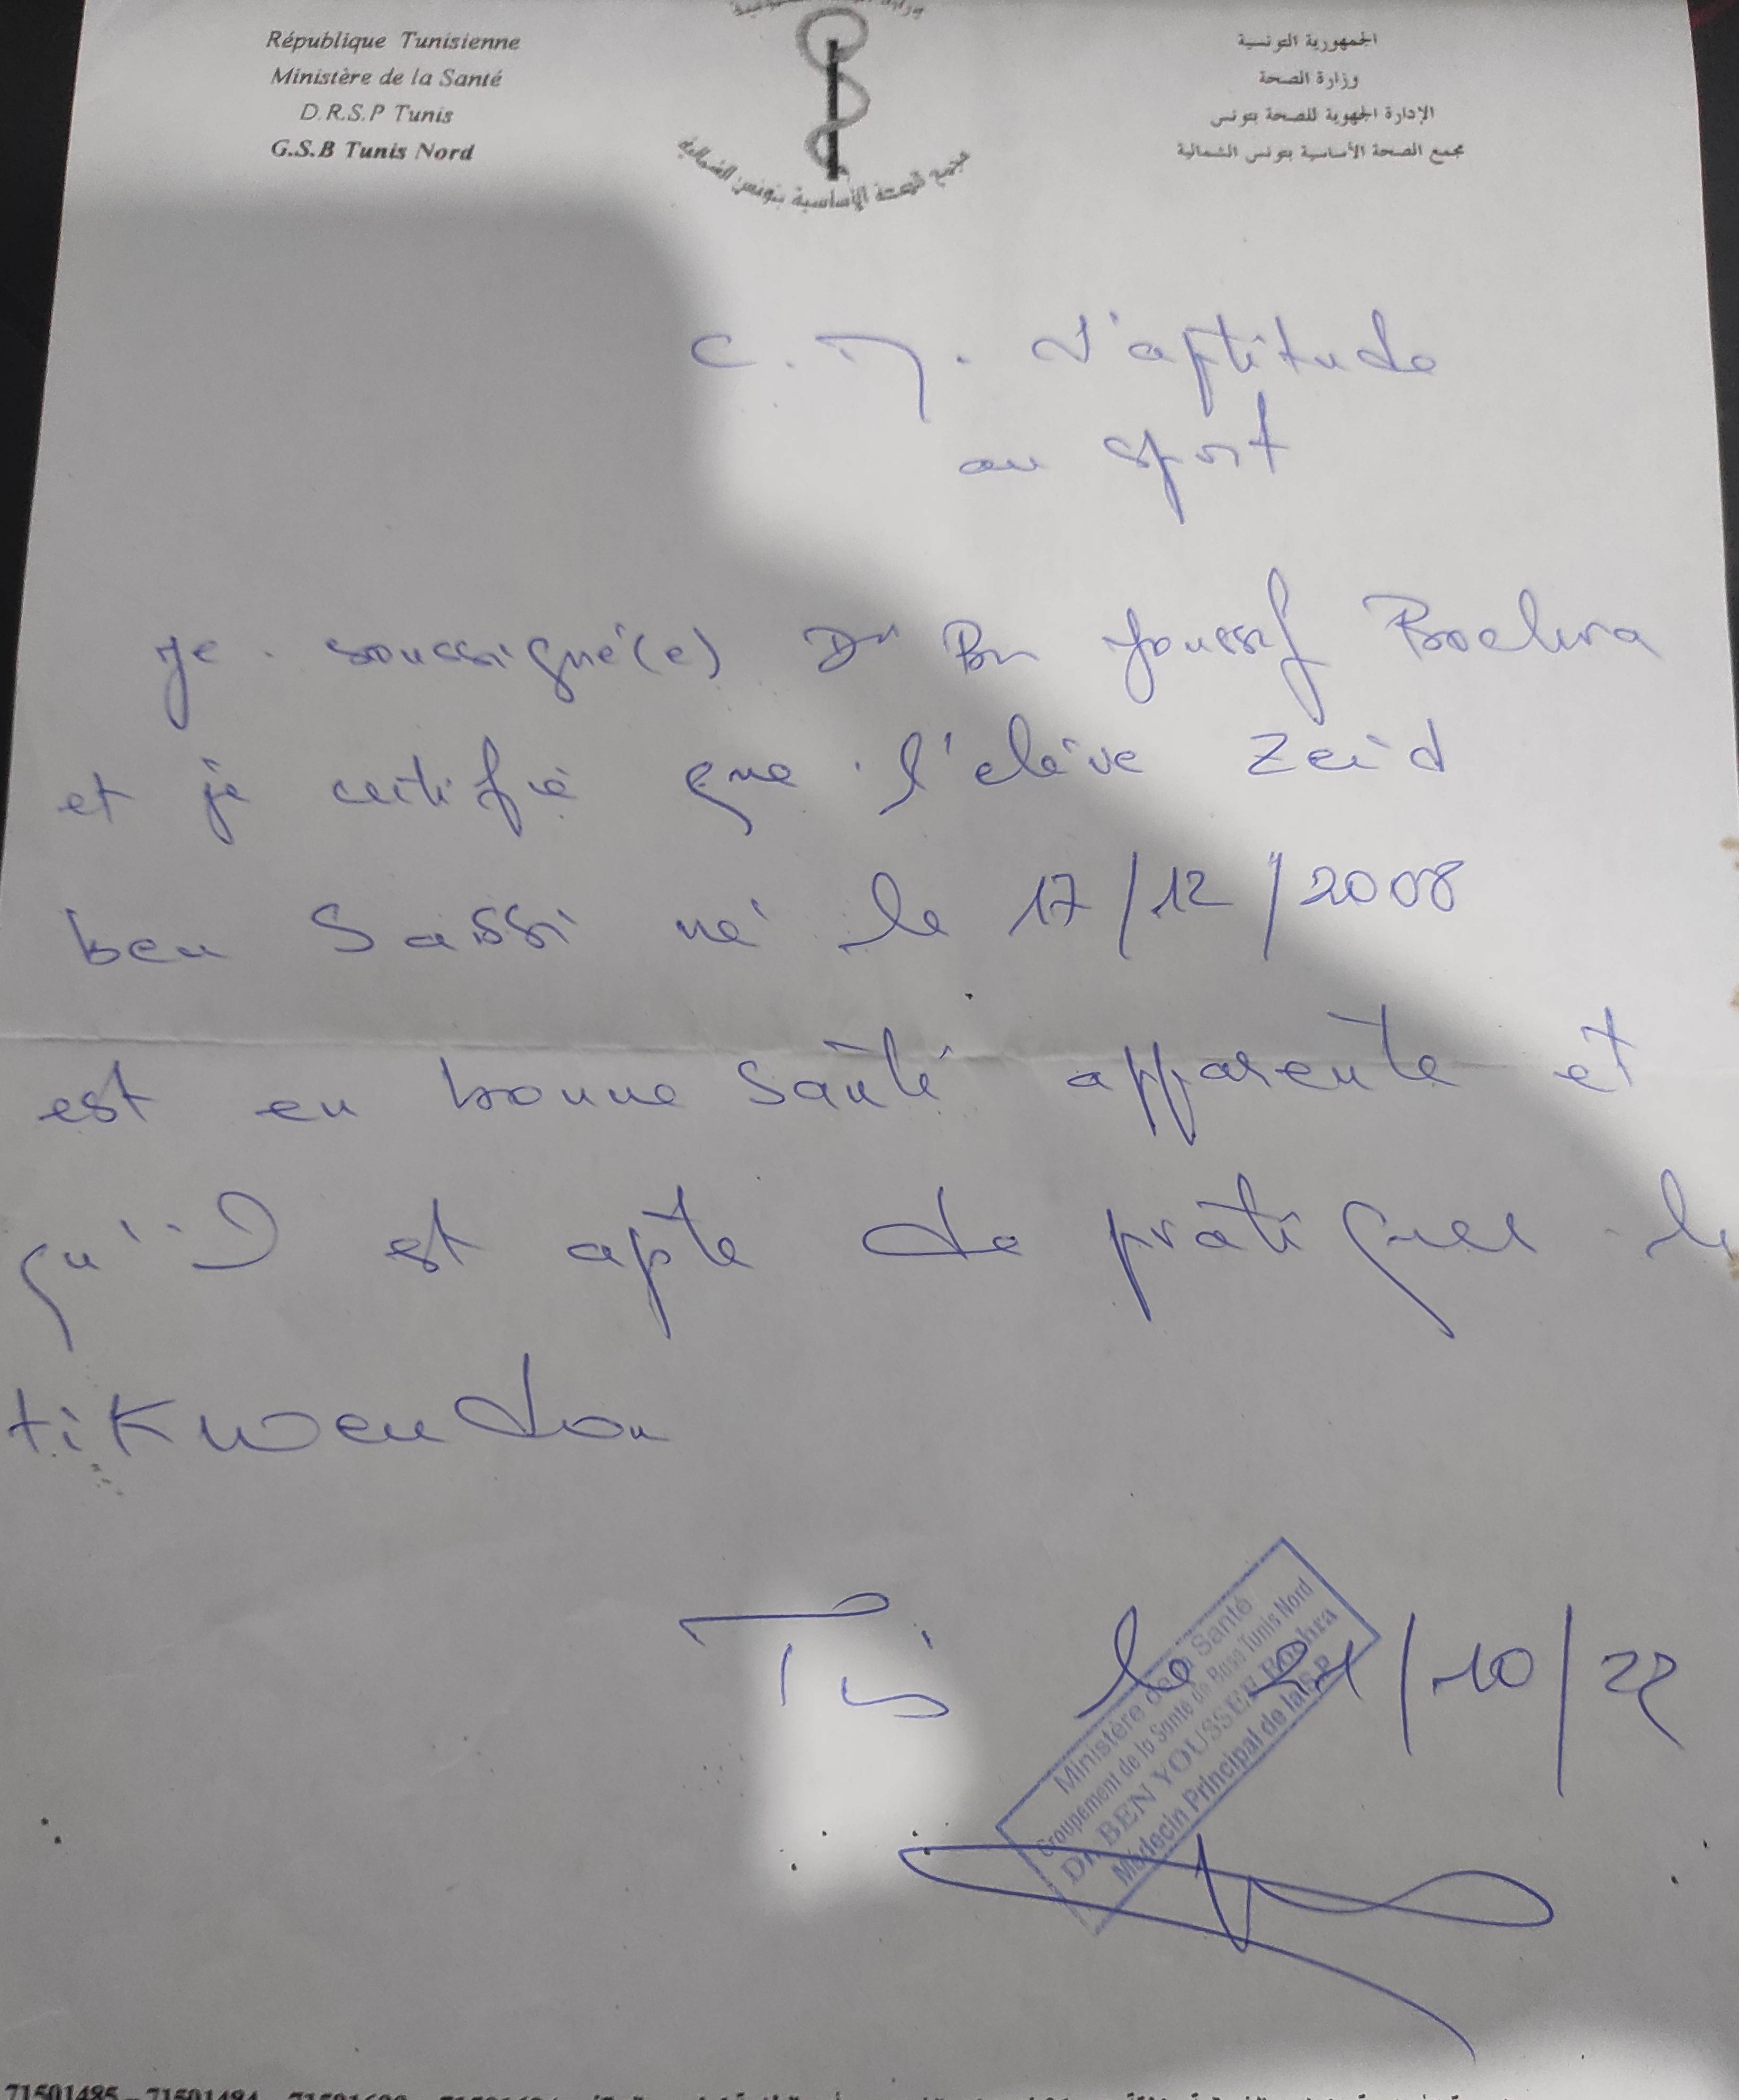 République Tunisienne
Ministère de la Santé
D.R.S.P Tunis
G.S.B Tunis Nord
الجمهورية التونسية
وزارة الصحة
الإدارة الجهوية للصحة بتونس
مجمع الصحة الأساسية بتونس الشمالية
مجمع الصحة الأساسية بتونس الشمالية
C. M. d'aptitude
au sport
Je soussigné(e) Dr Ben Youssef Bochra
et je certifie que l'elève Zeid
ben Sassi né le 17/12/2008
est en bonne santé apparente et
qu'il est apte de pratiquer le
tikwendou
Tis le 21/10/22
Ministère de la Santé
Groupement de la Santé de Base Tunis Nord
Dr. BEN YOUSSEF Bochra
Médecin Principal de la S.P
71501485 - 71501484